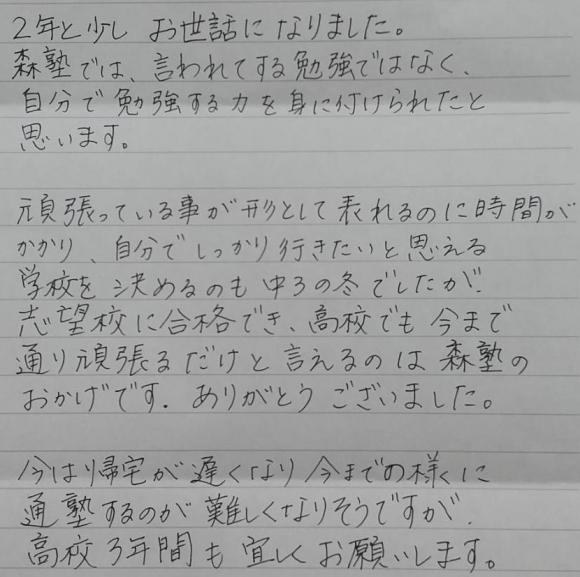 2年と少し お世話に なりました。
森塾では、言われてする勉強ではなく、
自分で勉強する力を身に付けられたと
思います。
頑張っている事が形として表れるのに時間が
かかり、自分でしっかり行きたいと思える
学校を決めるのも中3の冬でしたが、
志望校に合格でき、高校でも今まで
通り頑張るだけと言えるのは森塾の
おかげです。ありがとうございました。
今は帰宅が遅くなり今までの様に
通塾するのが難しくなりそうですが、
高校3年間も宜しくお願いします。